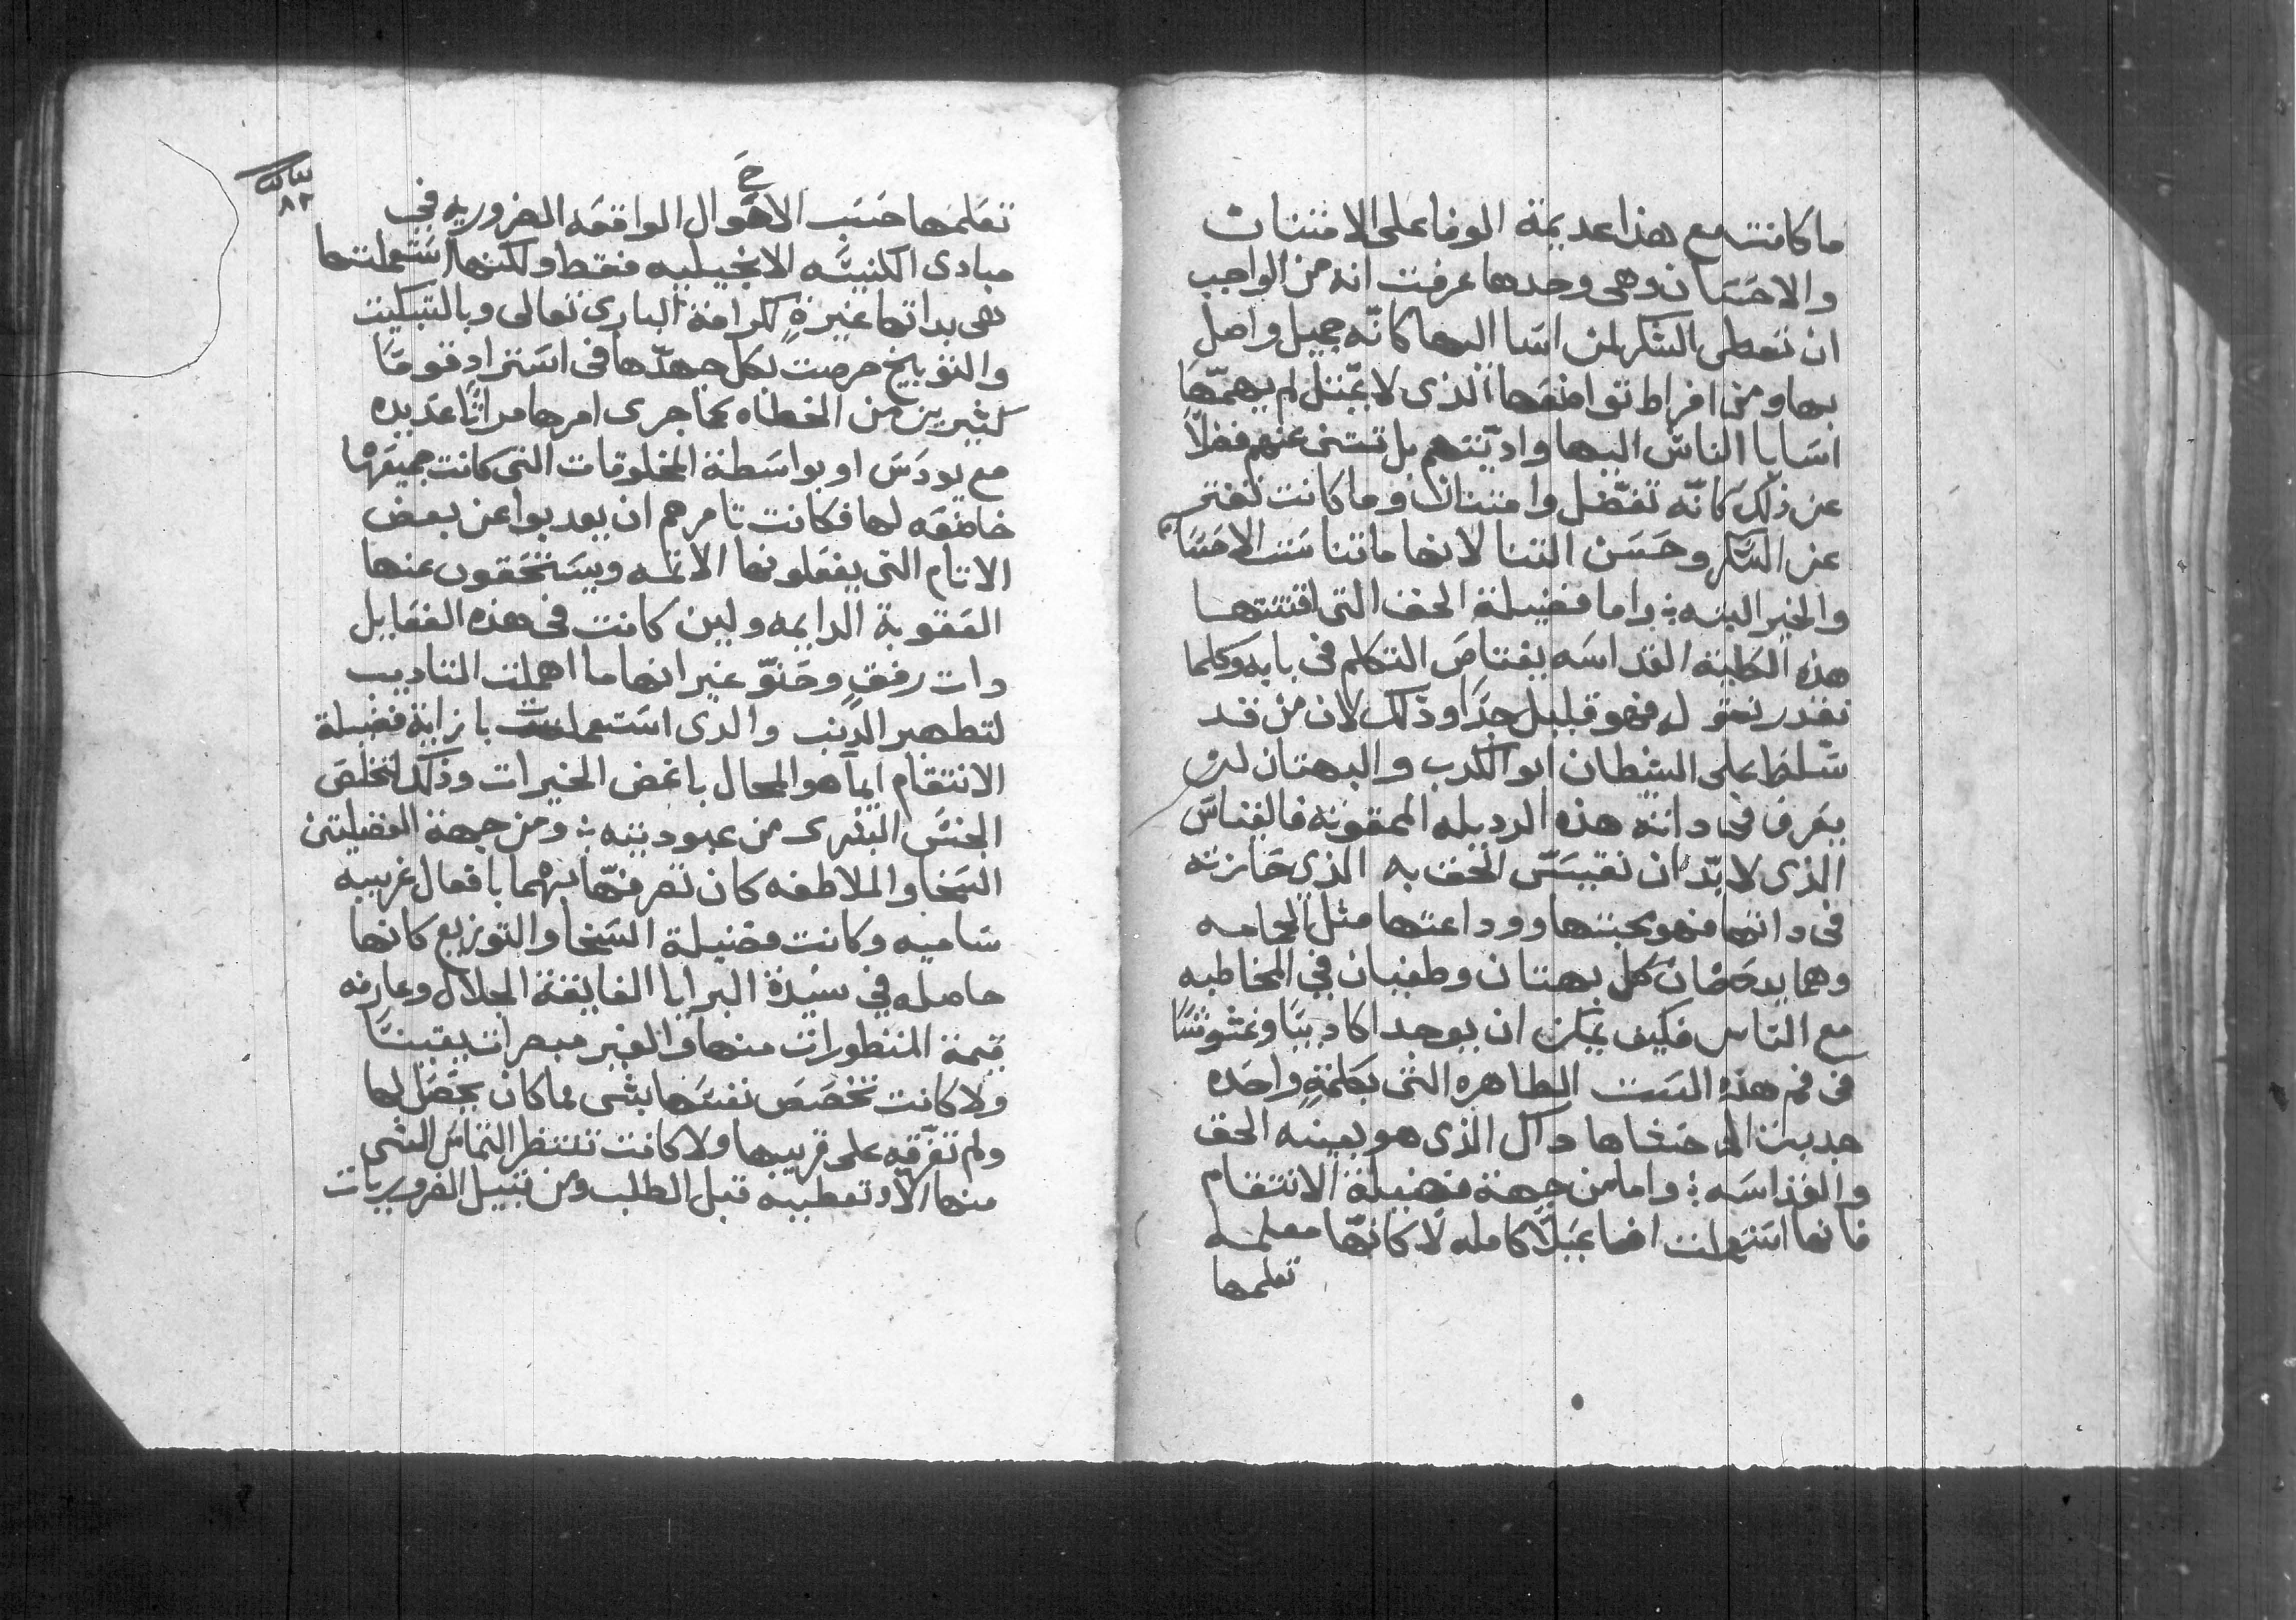 ما كانت مع هذا عديمة الوفا على الامتنان
والاحسان وهى وحدها عرفت انه من الواجب
ان تعطى الشكر لمن اسا اليها كانّه جميل واصل
بها ومن افراط تواضعها الذى لا يمّثل لم يهمّها
اسايا الناس اليها واديّتهم بل تستنى عنهم فضلاً
عن ذلك كانّه تفضّل وامتنان وما كانت تفتر
عن الشكر وحسن الثنا لانها ما تناست الاحسان
والخير البته ؛ واما فضيلة الحق التى اقتنتها
هذه الكلية القداسه يعتاص التكلم فى بابه وكلما
نقدر نقول فهو قليل جدًا وذلك لان من قد
تسلط على الشطان ابو الكدب والبهتان لن
يعرف فى داته هذه الرديله الممقوته فالقياس
الذى لا بدّ ان نقيسّ الحق به الذى حازته
فى داتها فهو محبتها ووداعتها مثل الحمامه
وهما يدحضان كل بهتان وطغيان فى المخاطبه
مع الناس فكيف يمكن ان يوجد اكاديبًا وغشوشًا
فى فم هذه الست الطاهره التى بكلمةٍ واحده
جدبت الى حشاها داك الذى هو بعينه الحق
والقداسه ؛ واما من جهة فضيلة الانتقام
فانها استعملت افعا عملاً كامله لا كانّها معلمه
تعلمها
٨٢
تعلمها حسب الاحوال الواقعه الضروريه فى
مبادى الكنيسه الانجيليه فقط ولكنها استعملتها
هى بداتها غيرةٍ لكرامة البارى تعالى وبالتبكيت
والتوبيخ حرصت بكل جهدّها فى استرداد قومًا
كثيرين من الخطاه كما جرى امرها مراتًا عديده
مع يودس او بواسطة المخلوقات التى كانت جميعها
خاضعه لها فكانت تامرهم ان يعدبوا عن بعض
الاتام التى يفعلونها الاتمه ويستحقون عنها
العقوبة الدايمه ولين كانت فى هذه الفعايل
دات رفقٍ وحنوّ غير انها ما اهملت التاديب
لتطهير الدنب والدى استعملت بازايه فضيلة
الانتقام ايما هو المحال باغض الخيرات وذلك لتخلص
الجنس البشرى من عبوديته ؛ ومن جهة الفضيلتين
السخا والملاطفه كان تصرفها بهما بافعال غريبه
ساميه وكانت فضيلة السخا والتوزيع كانها
حاصله فى سيدة البرايا الفايقة الجلال وعارفه
قيمة المنظورات منها والغير مبصرات يقينًا
ولا كانت تخصص نفسها بشى مما كان يحصل لها
ولم تفرّقه على قريبها ولا كانت تنتظر التماس الشى
منها الا وتعطيه قبل الطلب ومن قبيل الضروريات